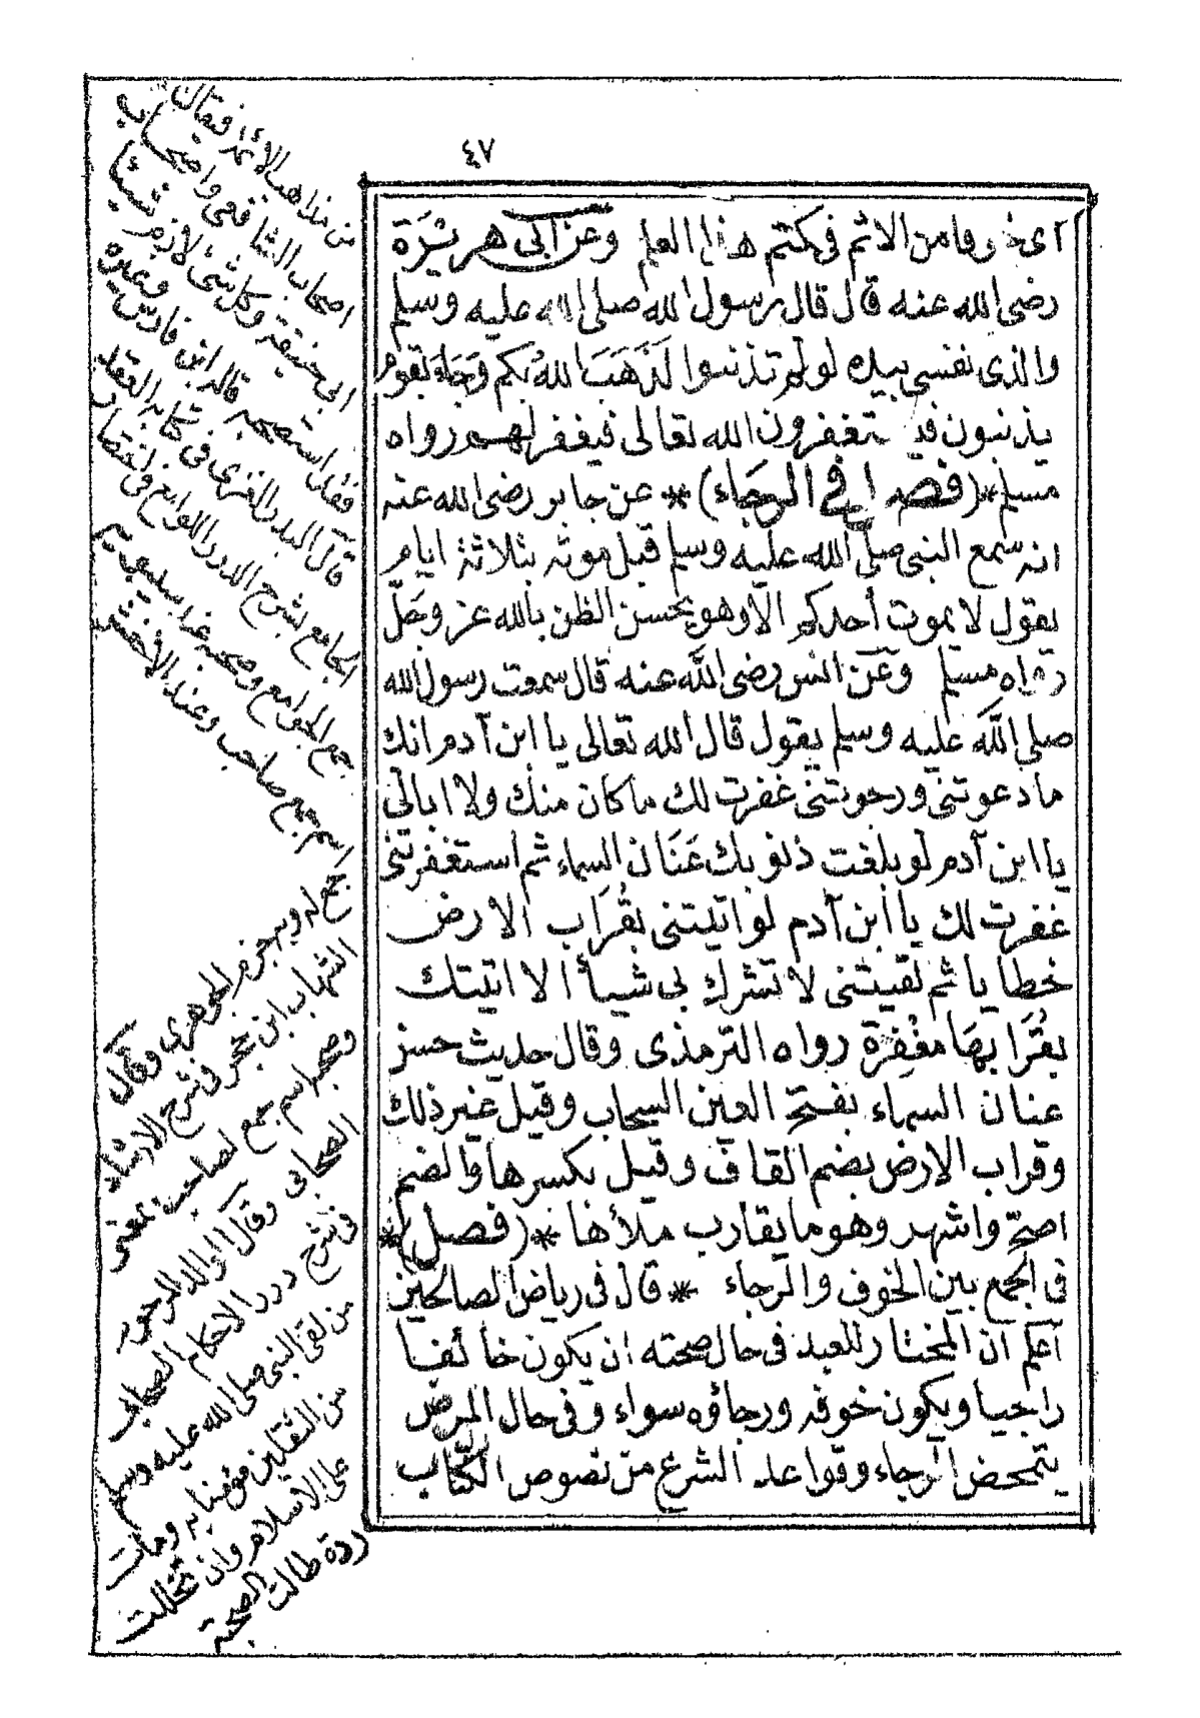 ٤٧
أى خوفا من الاثم فى كتم هذا العلم وعن ابى هريرة
رضى الله عنه قال قال رسول الله صلى الله عليه وسلم
والذى نفسى بيده لو لم تذنبوا لَذَهَبَ اللهُ بكم وَجَاءَ بقوم
يذنبون فيستغفرون الله تعالى فيغفر لهم رواه
مسلم *(فصل في الرجَاء)* عن جابر رضى الله عنه
انه سمع النبى صلى الله عليه وسلم قبل موته بثلاثة ايام
يقول لا يموت أحدكم الا وهو يحسن الظن بالله عز وجَلّ
رواه مسلم وعَن انس رضى الله عنه قال سمعت رسول الله
صلى الله عليه وسلم يقول قال الله تعالى يا ابن آدم انك
ما دعوتنى ورجوتنى غفرت لك ما كان منك ولا ابالى
يا ابن آدم لو بلغت ذنوبك عَنَان السماء ثم استغفرتنى
غفرت لك يا ابن آدم لو اتيتنى بقُرَاب الارض
خطايا ثم لقيتنى لا تشرك بى شيأ الا اتيتك
بقُرَابهَا مغْفِرة رواه الترمذى وقال حديث حسن
عنان السماء بفتح العين السحاب وقيل غير ذلك
وقراب الارض بضم القاف وقيل بكسرها والضم
اصح واشهر وهو ما يقارب ملأها *(فصل)*
فى الجمع بين الخوف والرجاء * قال فى رياض الصالحين
أعلم ان المختار للعبد فى حال صحته ان يكون خائفا
راجيا ويكون خوفه ورجاؤه سواء وفى حال المرض
يتمحض الرجاء وقواعد الشرع من نصوص الكتاب
من مذاهب الائمة فيقال
اصحاب الشافعى واصحاب
ابى حنيفة وكل شئ لازم شيئا
فقد استصحبه قاله ابن فارس وغيره
قال البدر الغزى فى كتابه العقد
الجامع بشرح الدرر اللوامع فى
جمع الجوامع وصحبه عند سيبويه
اسم جمع صاحب وعند الاخفش
جمع له وبه جزم الجوهرى وقال
الشهاب ابن حجر فى شرح الارشاد
وصحبه اسم جمع لصاحب بمعنى
الصحابى وقال الوالد المرحوم
فى شرح درر الاحكام الصحابى
من لقى النبى صلى الله عليه وسلم
من الثقلين مؤمنا به ومات
على الاسلام وان تخللت
ردة طالت الصحبة